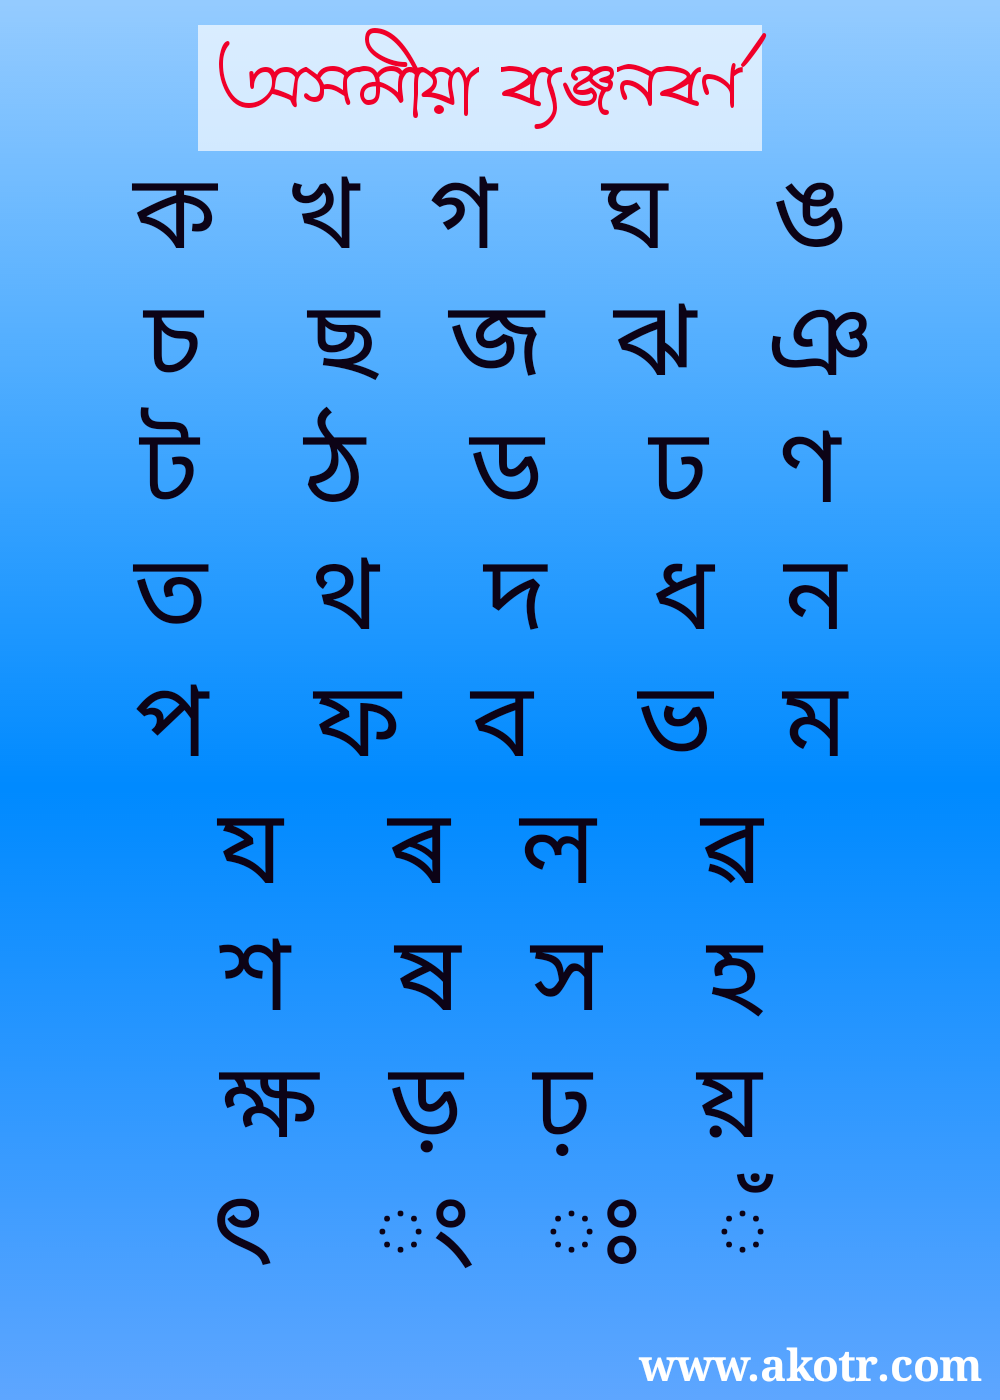 অসমীয়া ব্যঞ্জনবৰ্ণ
ক খ গ ঘ ঙ
চ ছ জ ঝ ঞ
ট ঠ ড ঢ ণ
ত থ দ ধ ন
প ফ ব ভ ম
য ৰ ল ৱ
শ ষ স হ
ক্ষ ড় ঢ় য়
ৎ ং ঃ ঁ
www.akotr.com